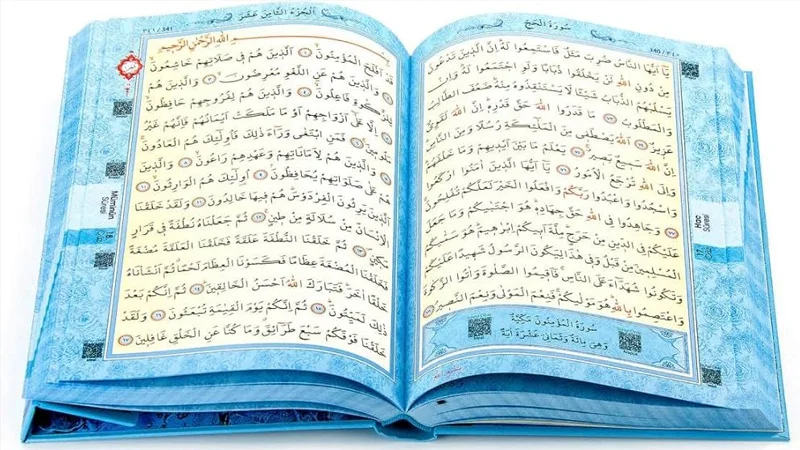 سُورَةُ الْحَجِّ
٣٤٠/340
يَا أَيُّهَا النَّاسُ ضُرِبَ مَثَلٌ فَاسْتَمِعُوا لَهُ إِنَّ الَّذِينَ تَدْعُونَ
مِنْ دُونِ اللّٰهِ لَنْ يَخْلُقُوا ذُبَابًا وَلَوِ اجْتَمَعُوا لَهُ وَإِنْ
يَسْلُبْهُمُ الذُّبَابُ شَيْئًا لَا يَسْتَنْقِذُوهُ مِنْهُ ضَعُفَ الطَّالِبُ
وَالْمَطْلُوبُ ٧٣ مَا قَدَرُوا اللّٰهَ حَقَّ قَدْرِهِ إِنَّ اللّٰهَ لَقَوِيٌّ
عَزِيزٌ ٧٤ اللّٰهُ يَصْطَفِي مِنَ الْمَلٰئِكَةِ رُسُلًا وَمِنَ النَّاسِ
إِنَّ اللّٰهَ سَمِيعٌ بَصِيرٌ ٧٥ يَعْلَمُ مَا بَيْنَ أَيْدِيهِمْ وَمَا خَلْفَهُمْ
وَإِلَى اللّٰهِ تُرْجَعُ الْأُمُورُ ٧٦ يَا أَيُّهَا الَّذِينَ آمَنُوا ارْكَعُوا
وَاسْجُدُوا وَاعْبُدُوا رَبَّكُمْ وَافْعَلُوا الْخَيْرَ لَعَلَّكُمْ تُفْلِحُونَ
٧٧ وَجَاهِدُوا فِي اللّٰهِ حَقَّ جِهَادِهِ هُوَ اجْتَبٰيكُمْ وَمَا جَعَلَ
عَلَيْكُمْ فِي الدِّينِ مِنْ حَرَجٍ مِلَّةَ أَبِيكُمْ إِبْرٰهِيمَ هُوَ سَمّٰيكُمُ
الْمُسْلِمِينَ مِنْ قَبْلُ وَفِي هٰذَا لِيَكُونَ الرَّسُولُ شَهِيدًا عَلَيْكُمْ
وَتَكُونُوا شُهَدَاءَ عَلَى النَّاسِ فَأَقِيمُوا الصَّلٰوةَ وَآتُوا الزَّكٰوةَ
وَاعْتَصِمُوا بِاللّٰهِ هُوَ مَوْلٰيكُمْ فَنِعْمَ الْمَوْلٰى وَنِعْمَ النَّصِيرُ ٧٨
سُورَةُ الْمُؤْمِنُونَ مَكِّيَّةٌ
وَهِيَ مِائَةٌ وَثَمَانِي عَشْرَةَ آيَةً
Hac
Sûresi
اَلْجُزْءُ الثَّامِنَ عَشَرَ
٣٤١/341
بِسْمِ اللّٰهِ الرَّحْمٰنِ الرَّحِيمِ
قَدْ أَفْلَحَ الْمُؤْمِنُونَ ١ الَّذِينَ هُمْ فِي صَلَاتِهِمْ خَاشِعُونَ
٢ وَالَّذِينَ هُمْ عَنِ اللَّغْوِ مُعْرِضُونَ ٣ وَالَّذِينَ هُمْ
لِلزَّكٰوةِ فَاعِلُونَ ٤ وَالَّذِينَ هُمْ لِفُرُوجِهِمْ حَافِظُونَ
٥ إِلَّا عَلٰى أَزْوَاجِهِمْ أَوْ مَا مَلَكَتْ أَيْمَانُهُمْ فَإِنَّهُمْ غَيْرُ
مَلُومِينَ ٦ فَمَنِ ابْتَغٰى وَرَاءَ ذٰلِكَ فَأُولٰئِكَ هُمُ الْعَادُونَ
٧ وَالَّذِينَ هُمْ لِأَمَانَاتِهِمْ وَعَهْدِهِمْ رَاعُونَ ٨ وَالَّذِينَ
هُمْ عَلٰى صَلَوَاتِهِمْ يُحَافِظُونَ ٩ أُولٰئِكَ هُمُ الْوَارِثُونَ ١٠
الَّذِينَ يَرِثُونَ الْفِرْدَوْسَ هُمْ فِيهَا خَالِدُونَ ١١ وَلَقَدْ خَلَقْنَا
الْإِنْسَانَ مِنْ سُلَالَةٍ مِنْ طِينٍ ١٢ ثُمَّ جَعَلْنَاهُ نُطْفَةً فِي قَرَارٍ
مَكِينٍ ١٣ ثُمَّ خَلَقْنَا النُّطْفَةَ عَلَقَةً فَخَلَقْنَا الْعَلَقَةَ مُضْغَةً
فَخَلَقْنَا الْمُضْغَةَ عِظَامًا فَكَسَوْنَا الْعِظَامَ لَحْمًا ثُمَّ أَنْشَأْنَاهُ
خَلْقًا آخَرَ فَتَبَارَكَ اللّٰهُ أَحْسَنُ الْخَالِقِينَ ١٤ ثُمَّ إِنَّكُمْ بَعْدَ
ذٰلِكَ لَمَيِّتُونَ ١٥ ثُمَّ إِنَّكُمْ يَوْمَ الْقِيٰمَةِ تُبْعَثُونَ ١٦ وَلَقَدْ
خَلَقْنَا فَوْقَكُمْ سَبْعَ طَرَائِقَ وَمَا كُنَّا عَنِ الْخَلْقِ غَافِلِينَ ١٧
Mü'minûn
Sûresi